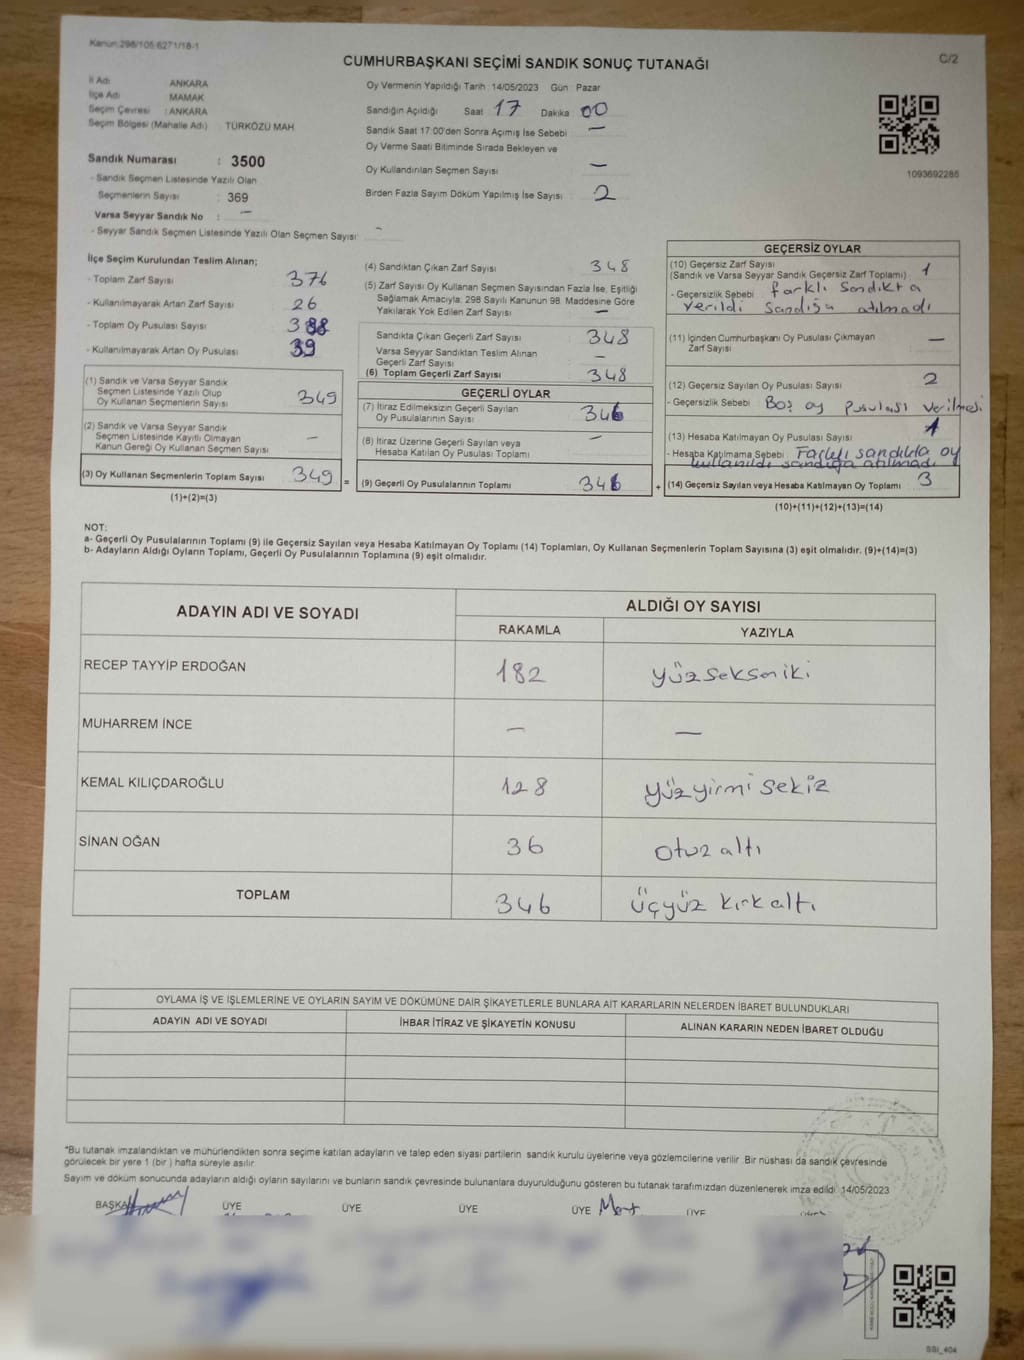 Kanun:298/105 6271/18-1
C/2
CUMHURBAŞKANI SEÇİMİ SANDIK SONUÇ TUTANAĞI
İl Adı ANKARA
İlçe Adı MAMAK
Seçim Çevresi : ANKARA
Seçim Bölgesi (Mahalle Adı) TÜRKÖZÜ MAH
Sandık Numarası : 3500
- Sandık Seçmen Listesinde Yazılı Olan
Seçmenlerin Sayısı : 369
Varsa Seyyar Sandık No : –
- Seyyar Sandık Seçmen Listesinde Yazılı Olan Seçmen Sayısı -
Oy Vermenin Yapıldığı Tarih : 14/05/2023 Gün Pazar
Sandığın Açıldığı Saat 17 Dakika 00
Sandık Saat 17:00'den Sonra Açımış İse Sebebi –
Oy Verme Saati Bitiminde Sırada Bekleyen ve
Oy Kullandırılan Seçmen Sayısı –
Birden Fazla Sayım Döküm Yapılmış İse Sayısı 2
1093692286
İlçe Seçim Kurulundan Teslim Alınan;
- Toplam Zarf Sayısı 376
- Kullanılmayarak Artan Zarf Sayısı 26
- Toplam Oy Pusulası Sayısı 388
- Kullanılmayarak Artan Oy Pusulası 39
(1) Sandık ve Varsa Seyyar Sandık
Seçmen Listesinde Yazılı Olup
Oy Kullanan Seçmenlerin Sayısı 349
(2) Sandık ve Varsa Seyyar Sandık
Seçmen Listesinde Kayıtlı Olmayan
Kanun Gereği Oy Kullanan Seçmen Sayısı –
(3) Oy Kullanan Seçmenlerin Toplam Sayısı 349 =
(1)+(2)=(3)
(4) Sandıktan Çıkan Zarf Sayısı 348
(5) Zarf Sayısı Oy Kullanan Seçmen Sayısından Fazla İse, Eşitliği
Sağlamak Amacıyla; 298 Sayılı Kanunun 98. Maddesine Göre
Yakılarak Yok Edilen Zarf Sayısı –
Sandıkta Çıkan Geçerli Zarf Sayısı 348
Varsa Seyyar Sandıktan Teslim Alınan
Geçerli Zarf Sayısı –
(6) Toplam Geçerli Zarf Sayısı 348
GEÇERLİ OYLAR
(7) İtiraz Edilmeksizin Geçerli Sayılan
Oy Pusulalarının Sayısı 346
(8) İtiraz Üzerine Geçerli Sayılan veya
Hesaba Katılan Oy Pusulası Toplamı –
(9) Geçerli Oy Pusulalarının Toplamı 346 +
GEÇERSİZ OYLAR
(10) Geçersiz Zarf Sayısı
(Sandık ve Varsa Seyyar Sandık Geçersiz Zarf Toplamı) 1
- Geçersizlik Sebebi : farklı sandıkta
verildi sandığa atılmadı
(11) İçinden Cumhurbaşkanı Oy Pusulası Çıkmayan
Zarf Sayısı –
(12) Geçersiz Sayılan Oy Pusulası Sayısı 2
- Geçersizlik Sebebi : Boş oy pusulası verilmesi
(13) Hesaba Katılmayan Oy Pusulası Sayısı 1
- Hesaba Katılmama Sebebi : Farklı sandıkta oy
kullanıldı sandığa atılmadı
(14) Geçersiz Sayılan veya Hesaba Katılmayan Oy Toplamı 3
(10)+(11)+(12)+(13)=(14)
NOT:
a- Geçerli Oy Pusulalarının Toplamı (9) ile Geçersiz Sayılan veya Hesaba Katılmayan Oy Toplamı (14) Toplamları, Oy Kullanan Seçmenlerin Toplam Sayısına (3) eşit olmalıdır. (9)+(14)=(3)
b- Adayların Aldığı Oyların Toplamı, Geçerli Oy Pusulalarının Toplamına (9) eşit olmalıdır.
ADAYIN ADI VE SOYADI ALDIĞI OY SAYISI
RAKAMLA YAZIYLA
RECEP TAYYİP ERDOĞAN 182 yüzseksen iki
MUHARREM İNCE – –
KEMAL KILIÇDAROĞLU 128 yüzyirmi sekiz
SİNAN OĞAN 36 otuz altı
TOPLAM 346 üçyüz kırk altı
OYLAMA İŞ VE İŞLEMLERİNE VE OYLARIN SAYIM VE DÖKÜMÜNE DAİR ŞİKAYETLERLE BUNLARA AİT KARARLARIN NELERDEN İBARET BULUNDUKLARI
ADAYIN ADI VE SOYADI İHBAR İTİRAZ VE ŞİKAYETİN KONUSU ALINAN KARARIN NEDEN İBARET OLDUĞU
*Bu tutanak imzalandıktan ve mühürlendikten sonra seçime katılan adayların ve talep eden siyasi partilerin sandık kurulu üyelerine veya gözlemcilerine verilir .Bir nüshası da sandık çevresinde
görülecek bir yere 1 (bir ) hafta süreyle asılır
Sayım ve döküm sonucunda adayların aldığı oyların sayılarını ve bunların sandık çevresinde bulunanlara duyurulduğunu gösteren bu tutanak tarafımızdan düzenlenerek imza edildi. 14/05/2023
BAŞKAN ÜYE ÜYE ÜYE ÜYE Mert ÜYE
SSI_404